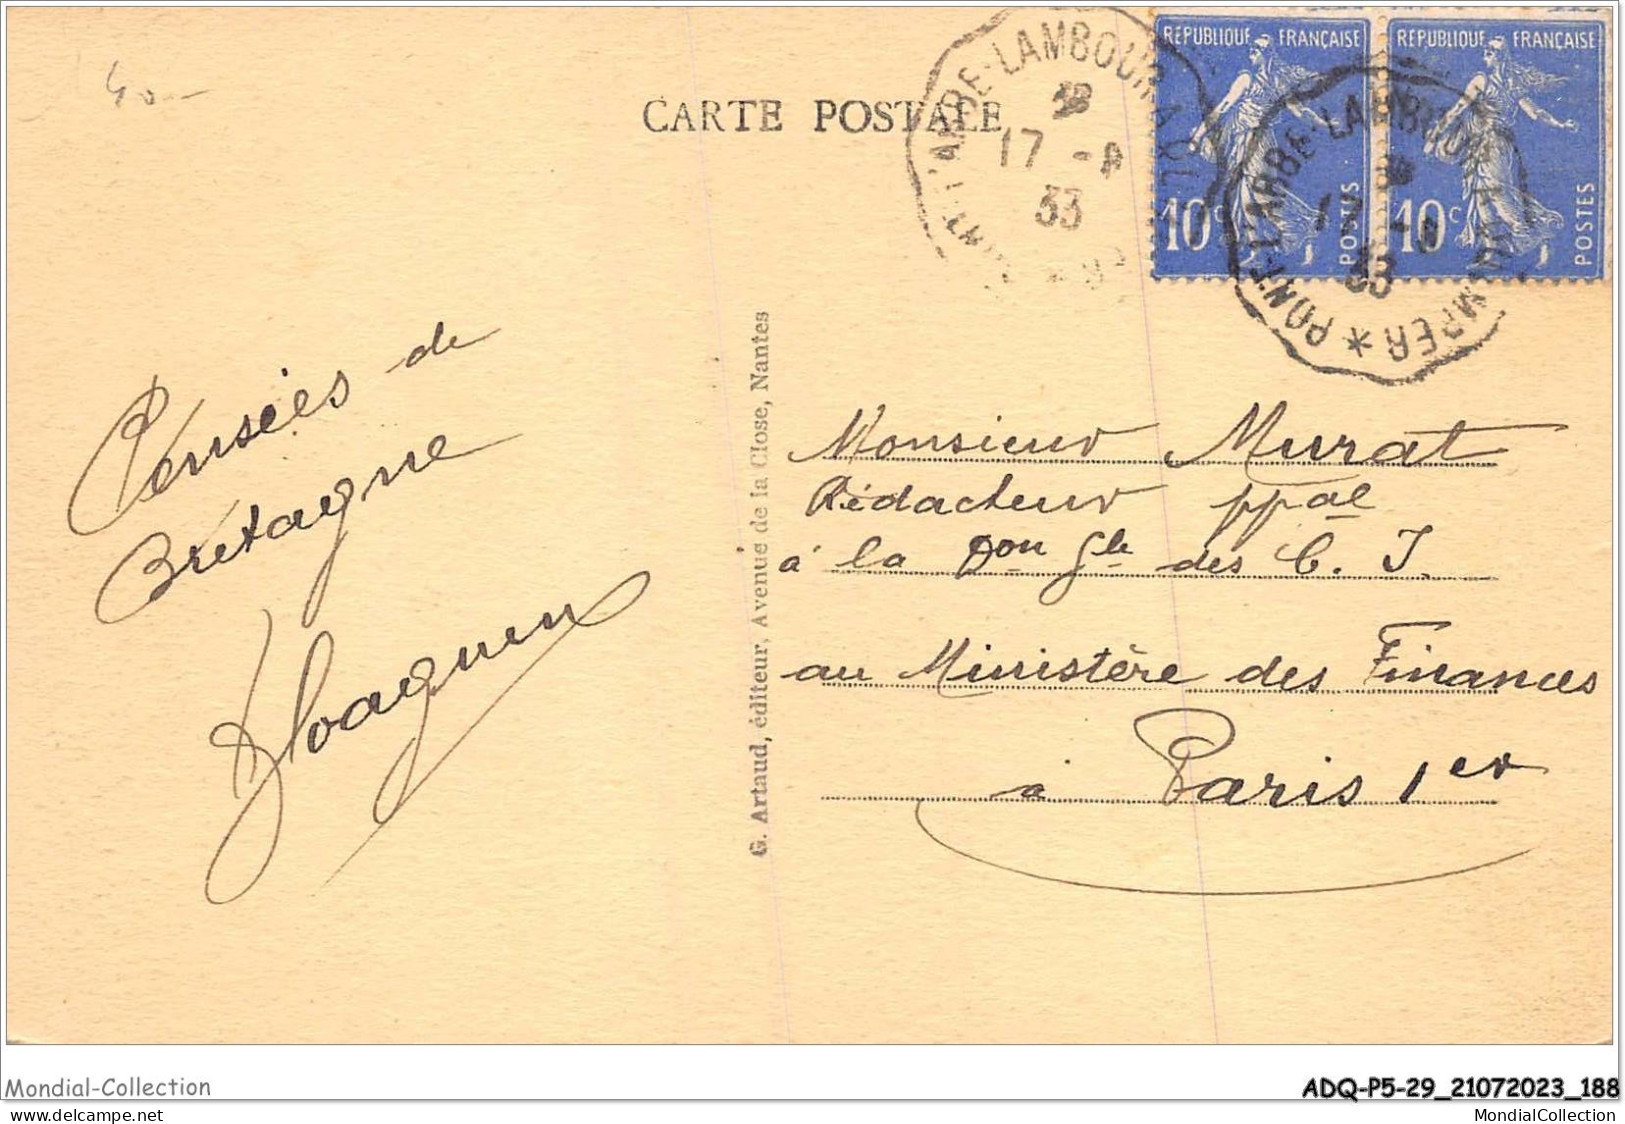 40--
CARTE POSTALE
PONT-L'ABBE-LAMBOUR A QUIMPER *
17 -8
33
RÉPUBLIQUE FRANÇAISE
10c
POSTES
RÉPUBLIQUE FRANÇAISE
10c
POSTES
PONT-L'ABBE-LAMBOUR A QUIMPER *
17 -8
33
Pensées de
Bretagne
G. Artaud, éditeur, Avenue de la Close, Nantes
Monsieur Murat
Rédacteur ppal
à la Don Gle des C. I.
au Ministère des Finances
à Paris 1er
Mondial-Collection
ADQ-P5-29_21072023_188
mondial-collection.delcampe.net
MondialCollection